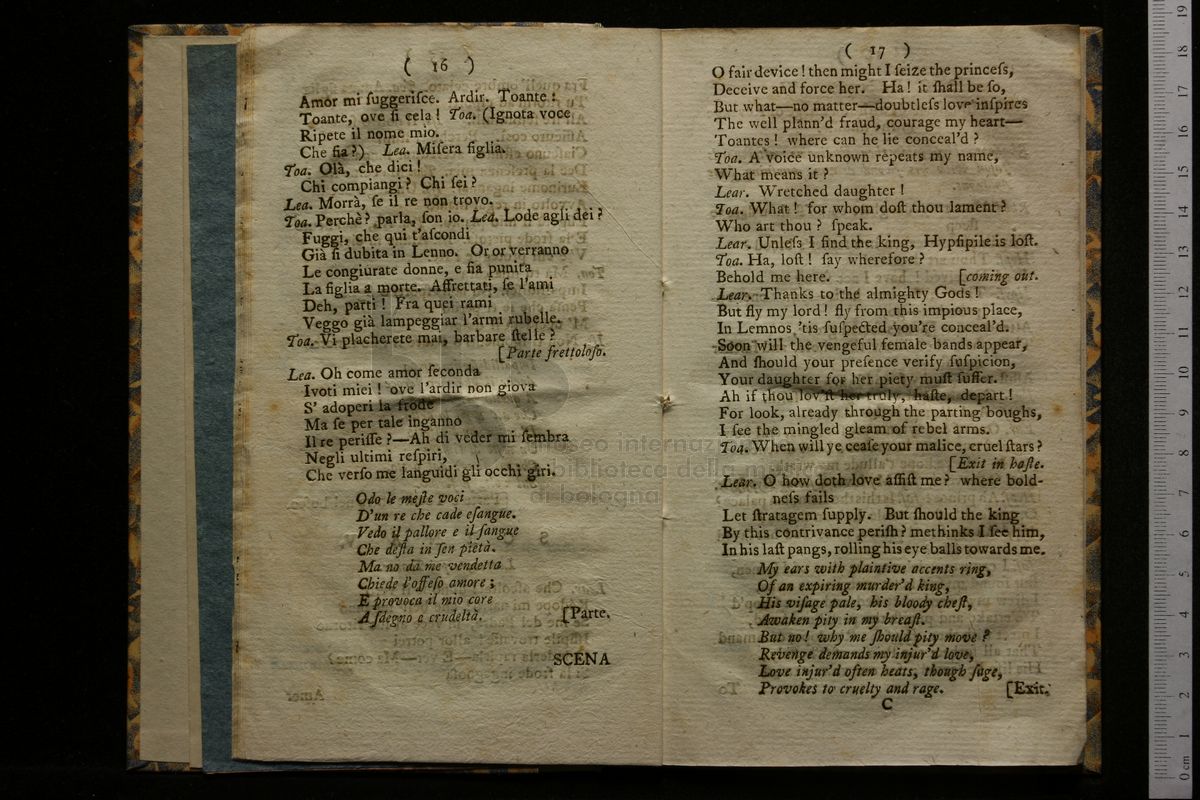 ( 16 )
Amor mi ſuggeriſce. Ardir. Toante!
Toante, ove ſi cela! Toa. (Ignota voce
Ripete il nome mio.
Che fia?) Lea. Miſera figlia.
Toa. Olà, che dici!
Chi compiangi? Chi ſei?
Lea. Morrà, ſe il re non trovo.
Toa. Perchè? parla, ſon io. Lea. Lode agli dei?
Fuggi, che qui t'aſcondi
Già ſi dubita in Lenno. Or or verranno
Le congiurate donne, e fia punita
La figlia a morte. Affrettati, ſe l'ami
Deh, parti! Fra quei rami
Veggo già lampeggiar l'armi rubelle.
Toa. Vi placherete mai, barbare ſtelle?
[Parte frettoloſo.
Lea. Oh come amor ſeconda
Ivoti miei! ove l'ardir non giova
S' adoperi la frode
Ma ſe per tale inganno
Il re periſſe?—Ah di veder mi ſembra
Negli ultimi reſpiri,
Che verſo me languidi gli occhi giri.
Odo le meſte voci
D'un re che cade eſangue.
Vedo il pallore e il ſangue
Che deſta in ſen pietà.
Ma no da me vendetta
Chiede l'offeſo amore;
E provoca il mio core
A ſdegno e crudeltà. [Parte.
SCENA
( 17 )
O fair device! then might I ſeize the princeſs,
Deceive and force her. Ha! it ſhall be ſo,
But what—no matter—doubtleſs love inſpires
The well plann'd fraud, courage my heart—
Toantes! where can he lie conceal'd?
Toa. A voice unknown repeats my name,
What means it?
Lear. Wretched daughter!
Toa. What! for whom doſt thou lament?
Who art thou? ſpeak.
Lear. Unleſs I find the king, Hypſipile is loſt.
Toa. Ha, loſt! ſay wherefore?
Behold me here. [coming out.
Lear. Thanks to the almighty Gods!
But fly my lord! fly from this impious place,
In Lemnos 'tis ſuſpected you're conceal'd.
Soon will the vengeful female bands appear,
And ſhould your preſence verify ſuſpicion,
Your daughter for her piety muſt ſuffer.
Ah if thou lov'ſt her truly, haſte, depart!
For look, already through the parting boughs,
I ſee the mingled gleam of rebel arms.
Toa. When will ye ceaſe your malice, cruel ſtars?
[Exit in haſte.
Lear. O how doth love aſſiſt me? where bold-
neſs fails
Let ſtratagem ſupply. But ſhould the king
By this contrivance periſh? methinks I ſee him,
In his laſt pangs, rolling his eye balls towards me.
My ears with plaintive accents ring,
Of an expiring murder'd king,
His viſage pale, his bloody cheſt,
Awaken pity in my breaſt.
But no! why me ſhould pity move?
Revenge demands my injur'd love,
Love injur'd often heats, though ſage,
Provokes to cruelty and rage. [Exit.
C
museo internazi
biblioteca della m
di bologna
0 cm 1 2 3 4 5 6 7 8 9 10 11 12 13 14 15 16 17 18 19